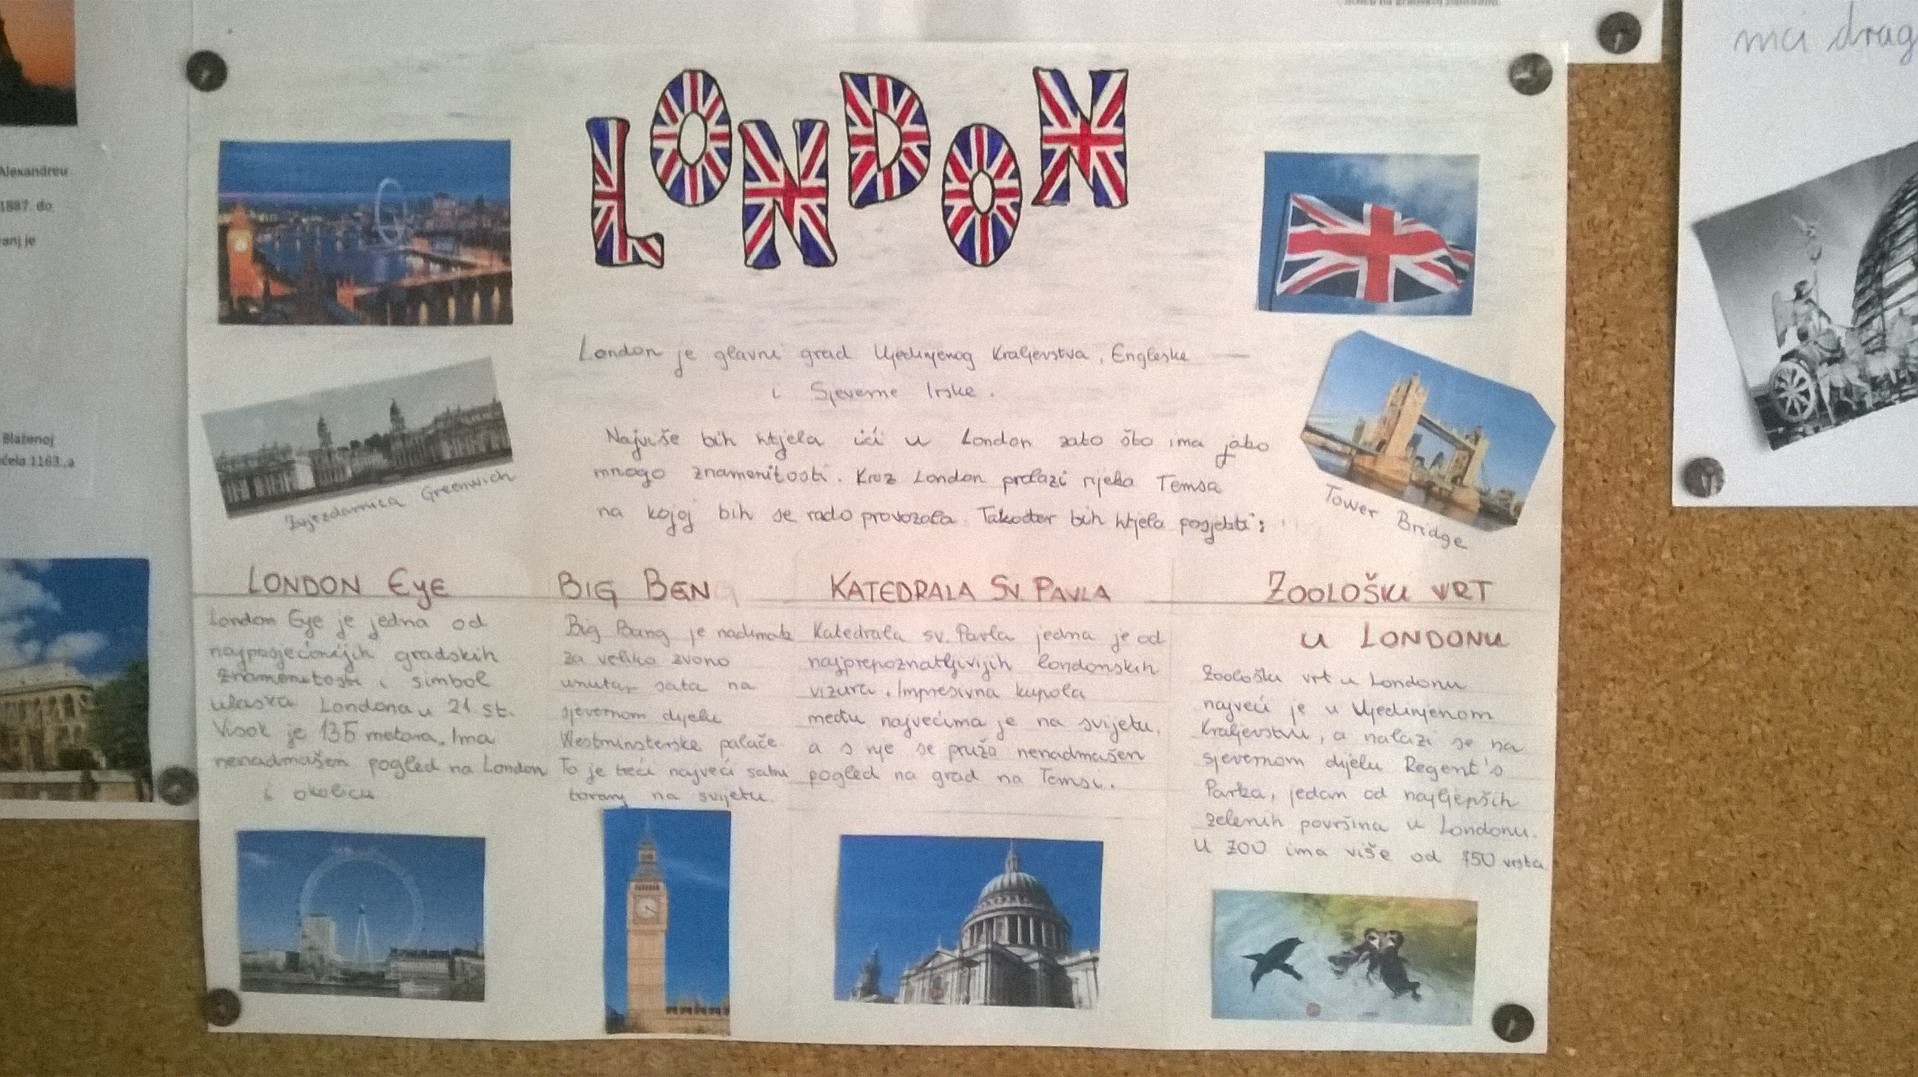 Alexandreu
1887. do
anj je
Blaženoj
čela 1163.,a
nci drag
LONDON
London je glavni grad Ujedinjenog Kraljevstva, Engleske
i Sjeverne Irske.
Najviše bih htjela ići u London zato što ima jako
mnogo znamenitosti. Kroz London prolazi rijeka Temsa
na kojoj bih se rado provozala. Također bih htjela posjetiti:
Zvjezdarnica Greenwich
Tower Bridge
LONDON Eye
London Eye je jedna od
najposjećenijih gradskih
znamenitosti i simbol
ulaska Londona u 21 st.
Visok je 135 metara. Ima
nenadmašen pogled na London
i okolicu
BIG BEN
Big Bang je nadimak
za veliko zvono
unutar sata na
sjevernom dijelu
Westminsterske palače.
To je treći najveći satni
toranj na svijetu.
KATEDRALA SV. PAVLA
Katedrala sv. Pavla jedna je od
najprepoznatljivijih londonskih
vizura. Impresivna kupola
među najvećima je na svijetu,
a s nje se pruža nenadmašen
pogled na grad na Temsi.
ZOOLOŠKI VRT
U LONDONU
Zoološki vrt u Londonu
najveći je u Ujedinjenom
Kraljevstvu, a nalazi se na
sjevernom dijelu Regent's
Parka, jedan od najljepših
zelenih površina u Londonu.
U ZOO ima više od 750 vrsta